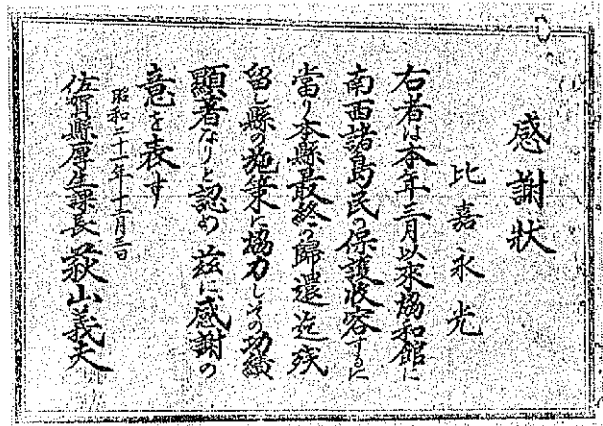 感謝狀
比嘉永光
右者は本年三月以來協和館に
南西諸島民の保護收容するに
當り本縣最終の歸還迄残
留し縣の施策に協力しその功績
顯著なりと認め茲に感謝の
意を表す
昭和二十一年十二月三日
佐賀縣厚生課長萩山義夫